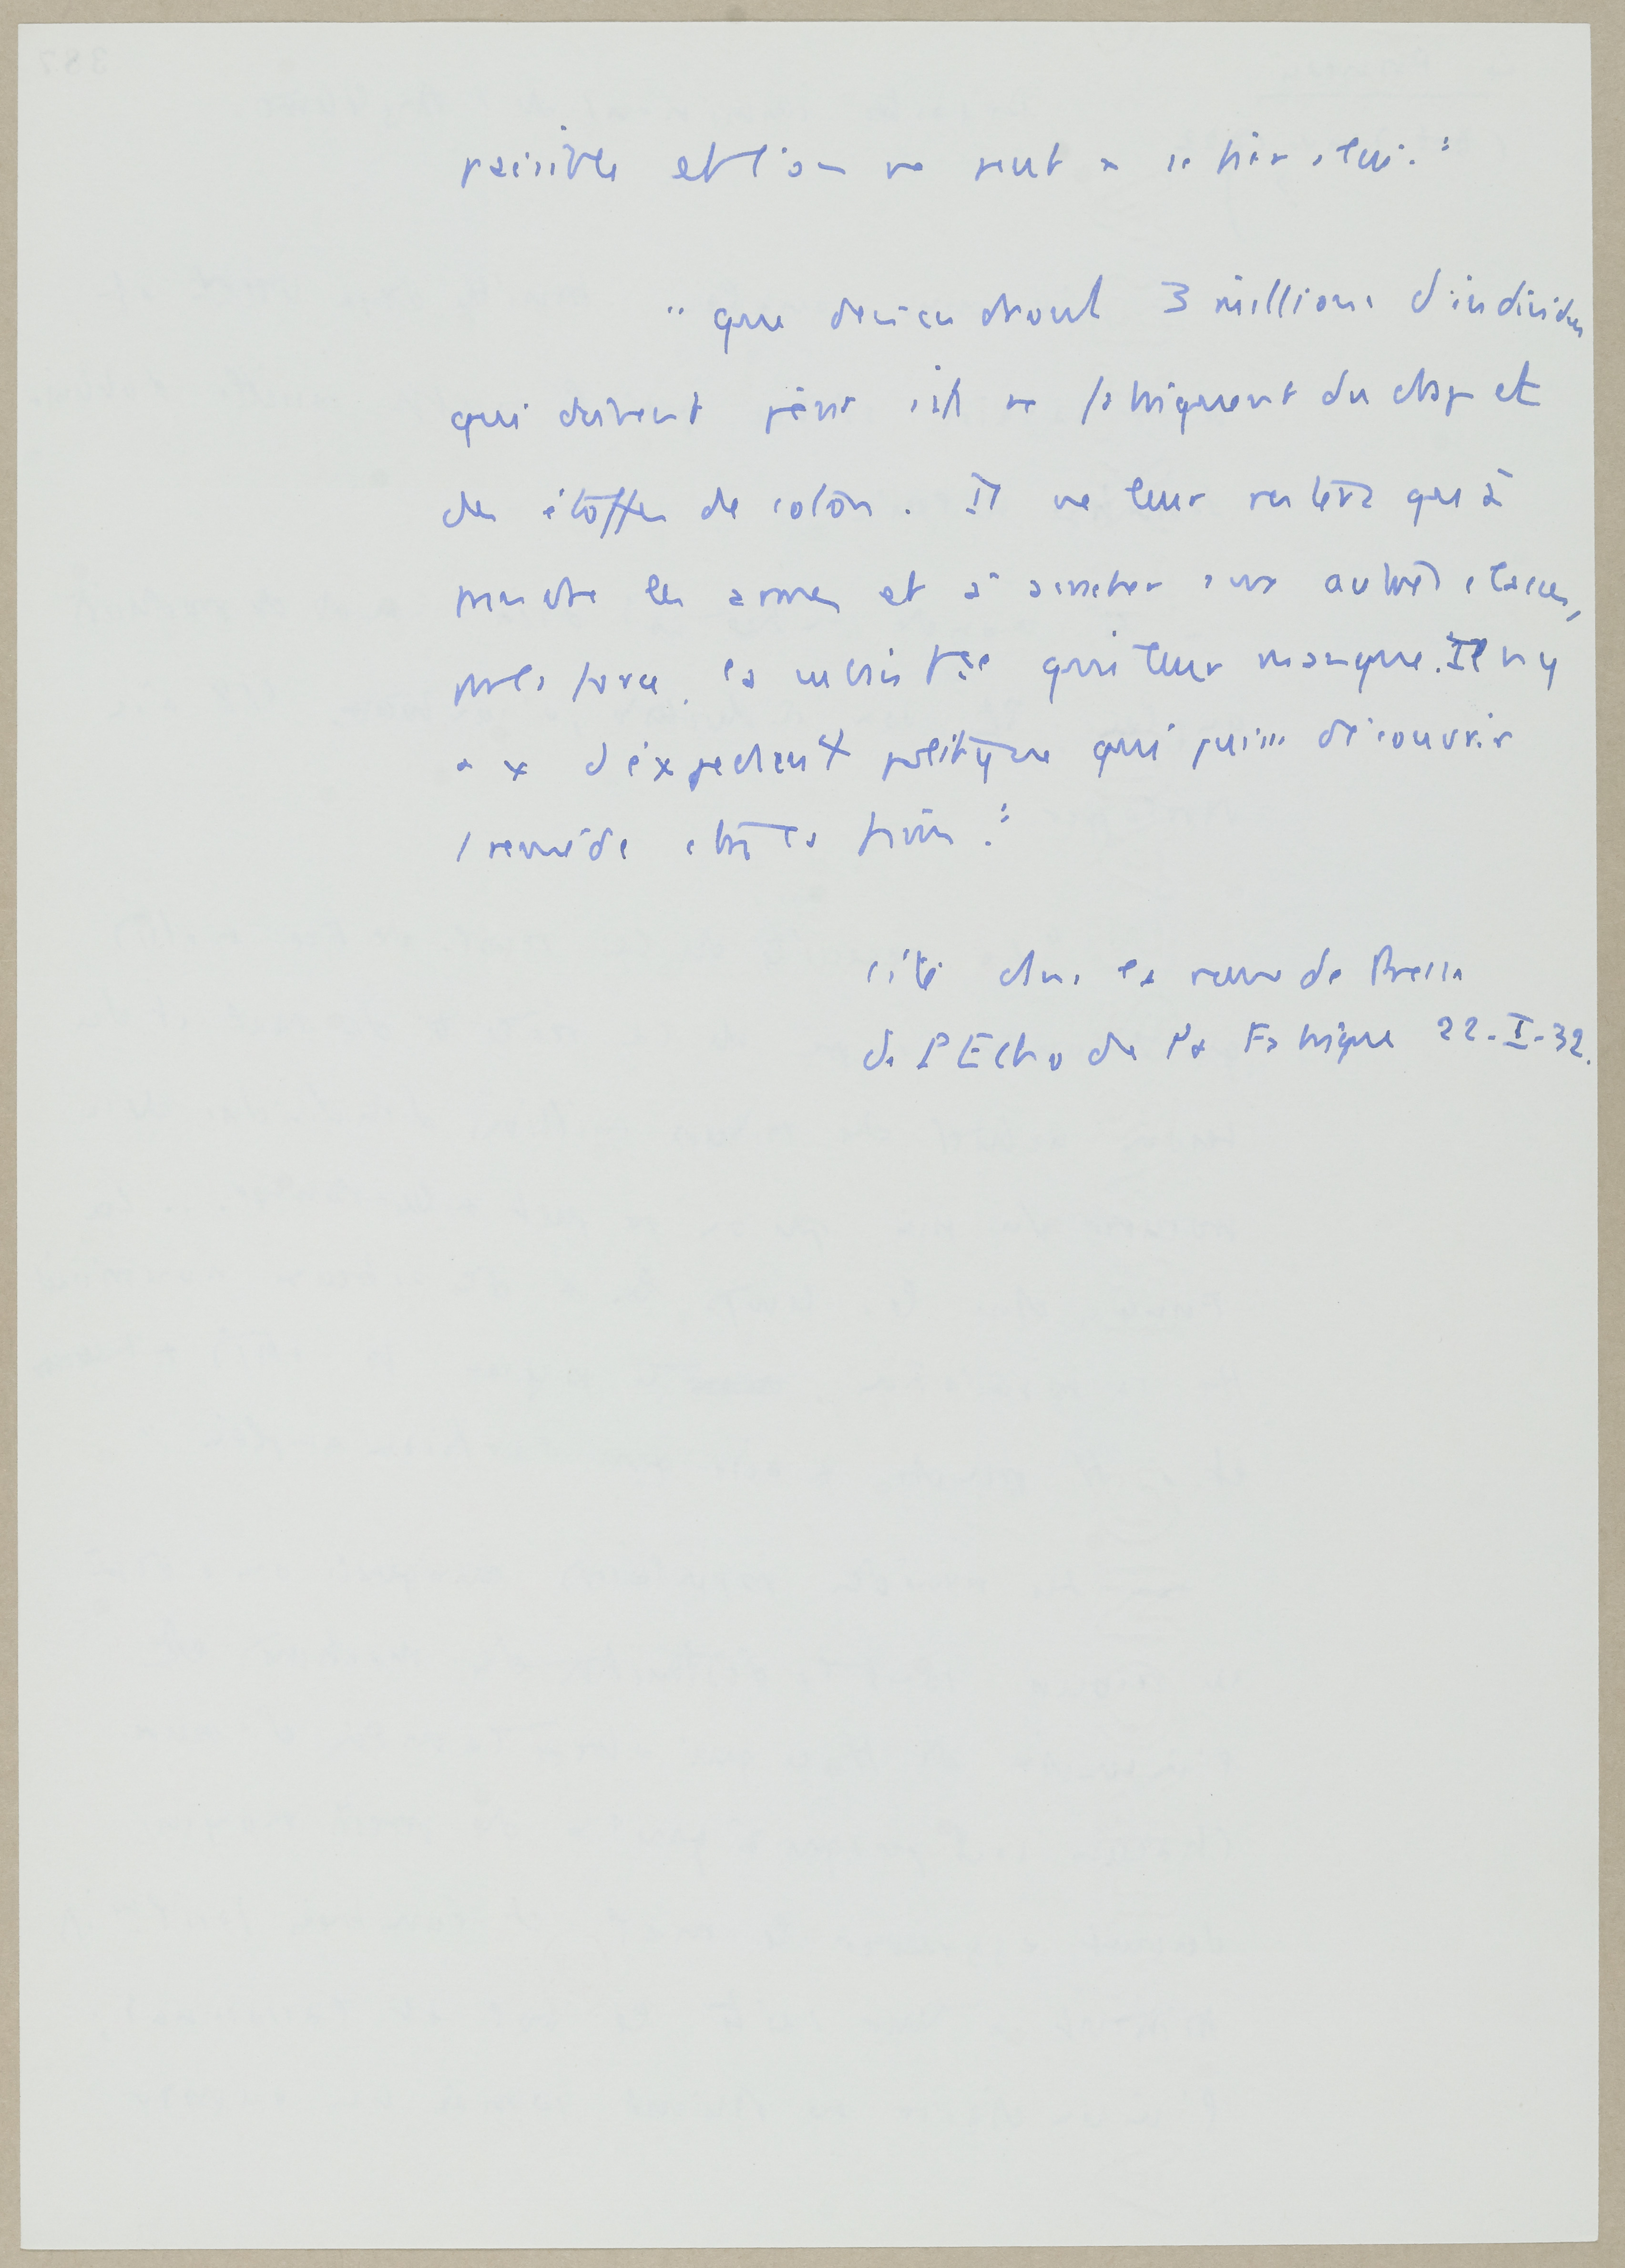 paisible et l'on ne peut x se fier à lui."
"que deviendront 3 millions d'individus
qui doivent périr s'ils ne fabriquent du drap et
des étoffes de coton. Il ne leur restera qu'à
prendre les armes et à arracher aux autres classes,
par la force, la subsistance qui leur manque. Il n'y
a x d'expédient politique qui puisse découvrir
1 remède contre la faim."
cité dans la revue de Presse
de l'Echo de la Fabrique 22-I-32.